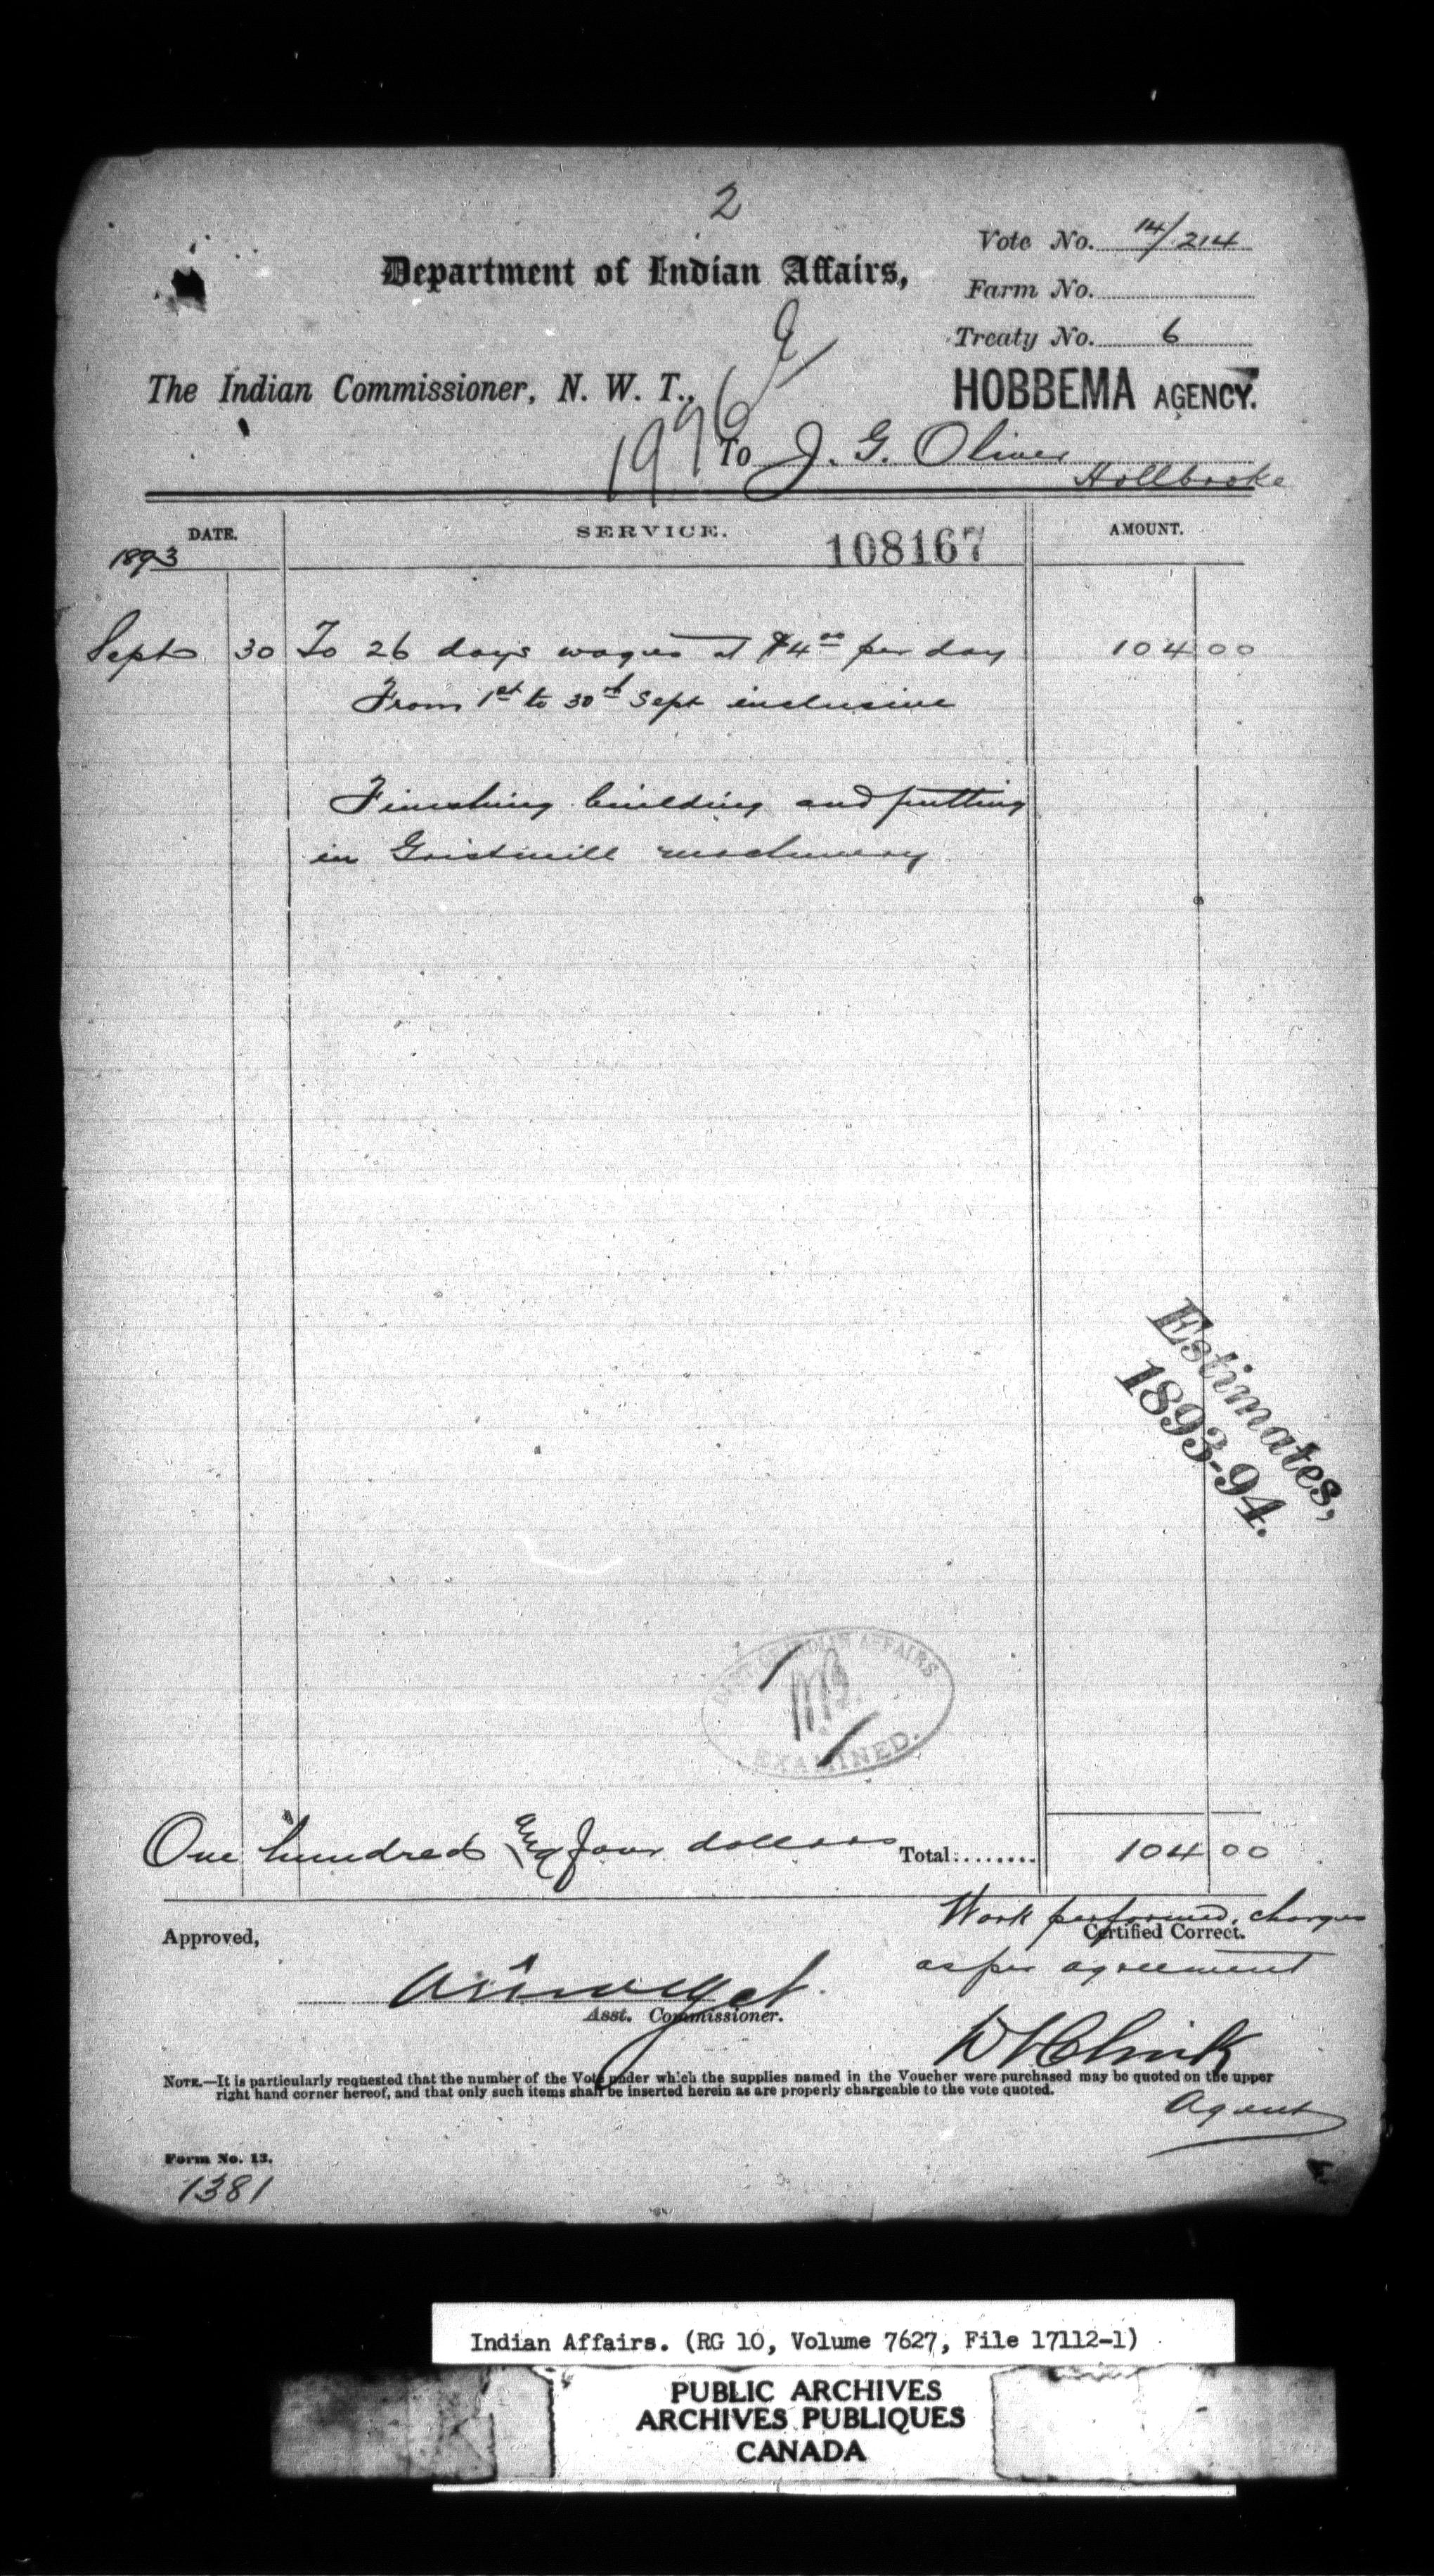 2
Vote No. 14/214
Department of Indian Affairs,
Farm No.
Treaty No. 6
The Indian Commissioner, N. W. T.,
HOBBEMA AGENCY.
1996
To J. G. Oliver
Hollbrooke
DATE. SERVICE. 108167 AMOUNT.
1893
Sept 30 To 26 days wages at $4.00 per day 104 00
From 1st to 30th Sept inclusive
Finishing building and putting
in Gristmill machinery
Estimates,
1893-94.
DEPT OF INDIAN AFFAIRS
EXAMINED.
One hundred and four dollars Total........ 104 00
Work performed, charges
Approved, Certified Correct.
as per agreement
Asst. Commissioner.
NOTE.—It is particularly requested that the number of the Vote under which the supplies named in the Voucher were purchased may be quoted on the upper
right hand corner hereof, and that only such items shall be inserted herein as are properly chargeable to the vote quoted.
Agent
Form No. 13.
1381
Indian Affairs. (RG 10, Volume 7627, File 17112-1)
PUBLIC ARCHIVES
ARCHIVES PUBLIQUES
CANADA